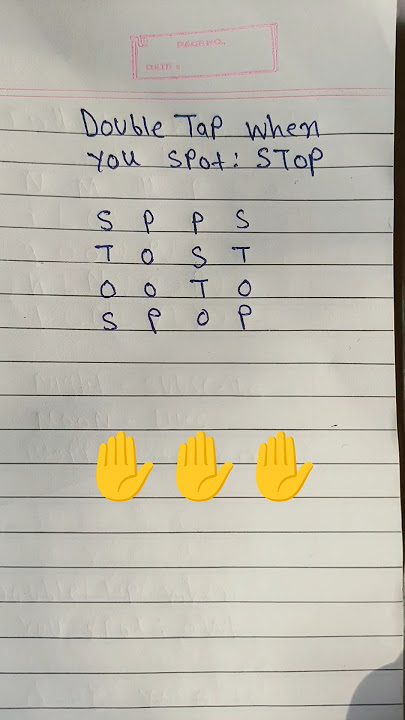 PAGE NO.
DATE :
Double Tap when
you spot: STOP
S P P S
T O S T
O O T O
S P O P